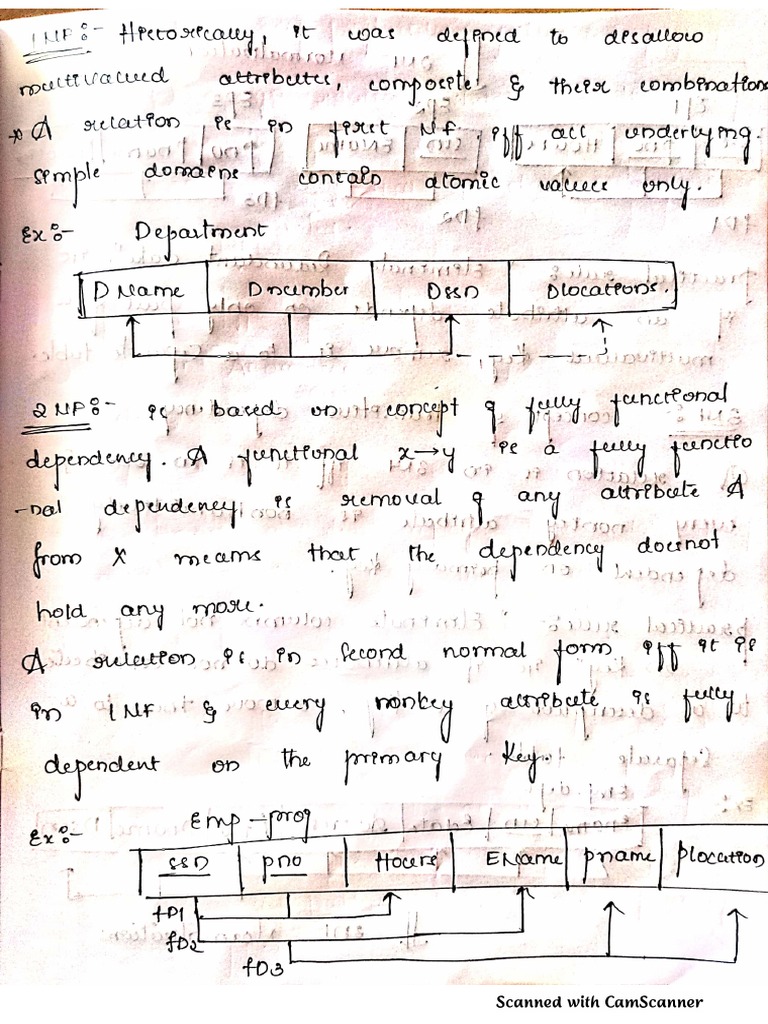 1NF:- Historically, it was defined to disallow
multivalued attributes, composite & their combinations
* A relation is in first NF iff all underlying
simple domains contain atomic values only.
Ex:- Department
DName Dnumber Dssn Dlocations.
2NF:- is based on concept of fully functional
dependency. A functional x→y is a fully functio
-nal dependency is removal of any attribute A
from X means that the dependency doesnot
hold any more.
A relation is in second normal form iff it is
in 1NF & every nonkey attribute is fully
dependent on the primary key
Ex:- Emp-proj
ssn pno Hours EName pname plocation
fD1
fD2
fD3
Scanned with CamScanner